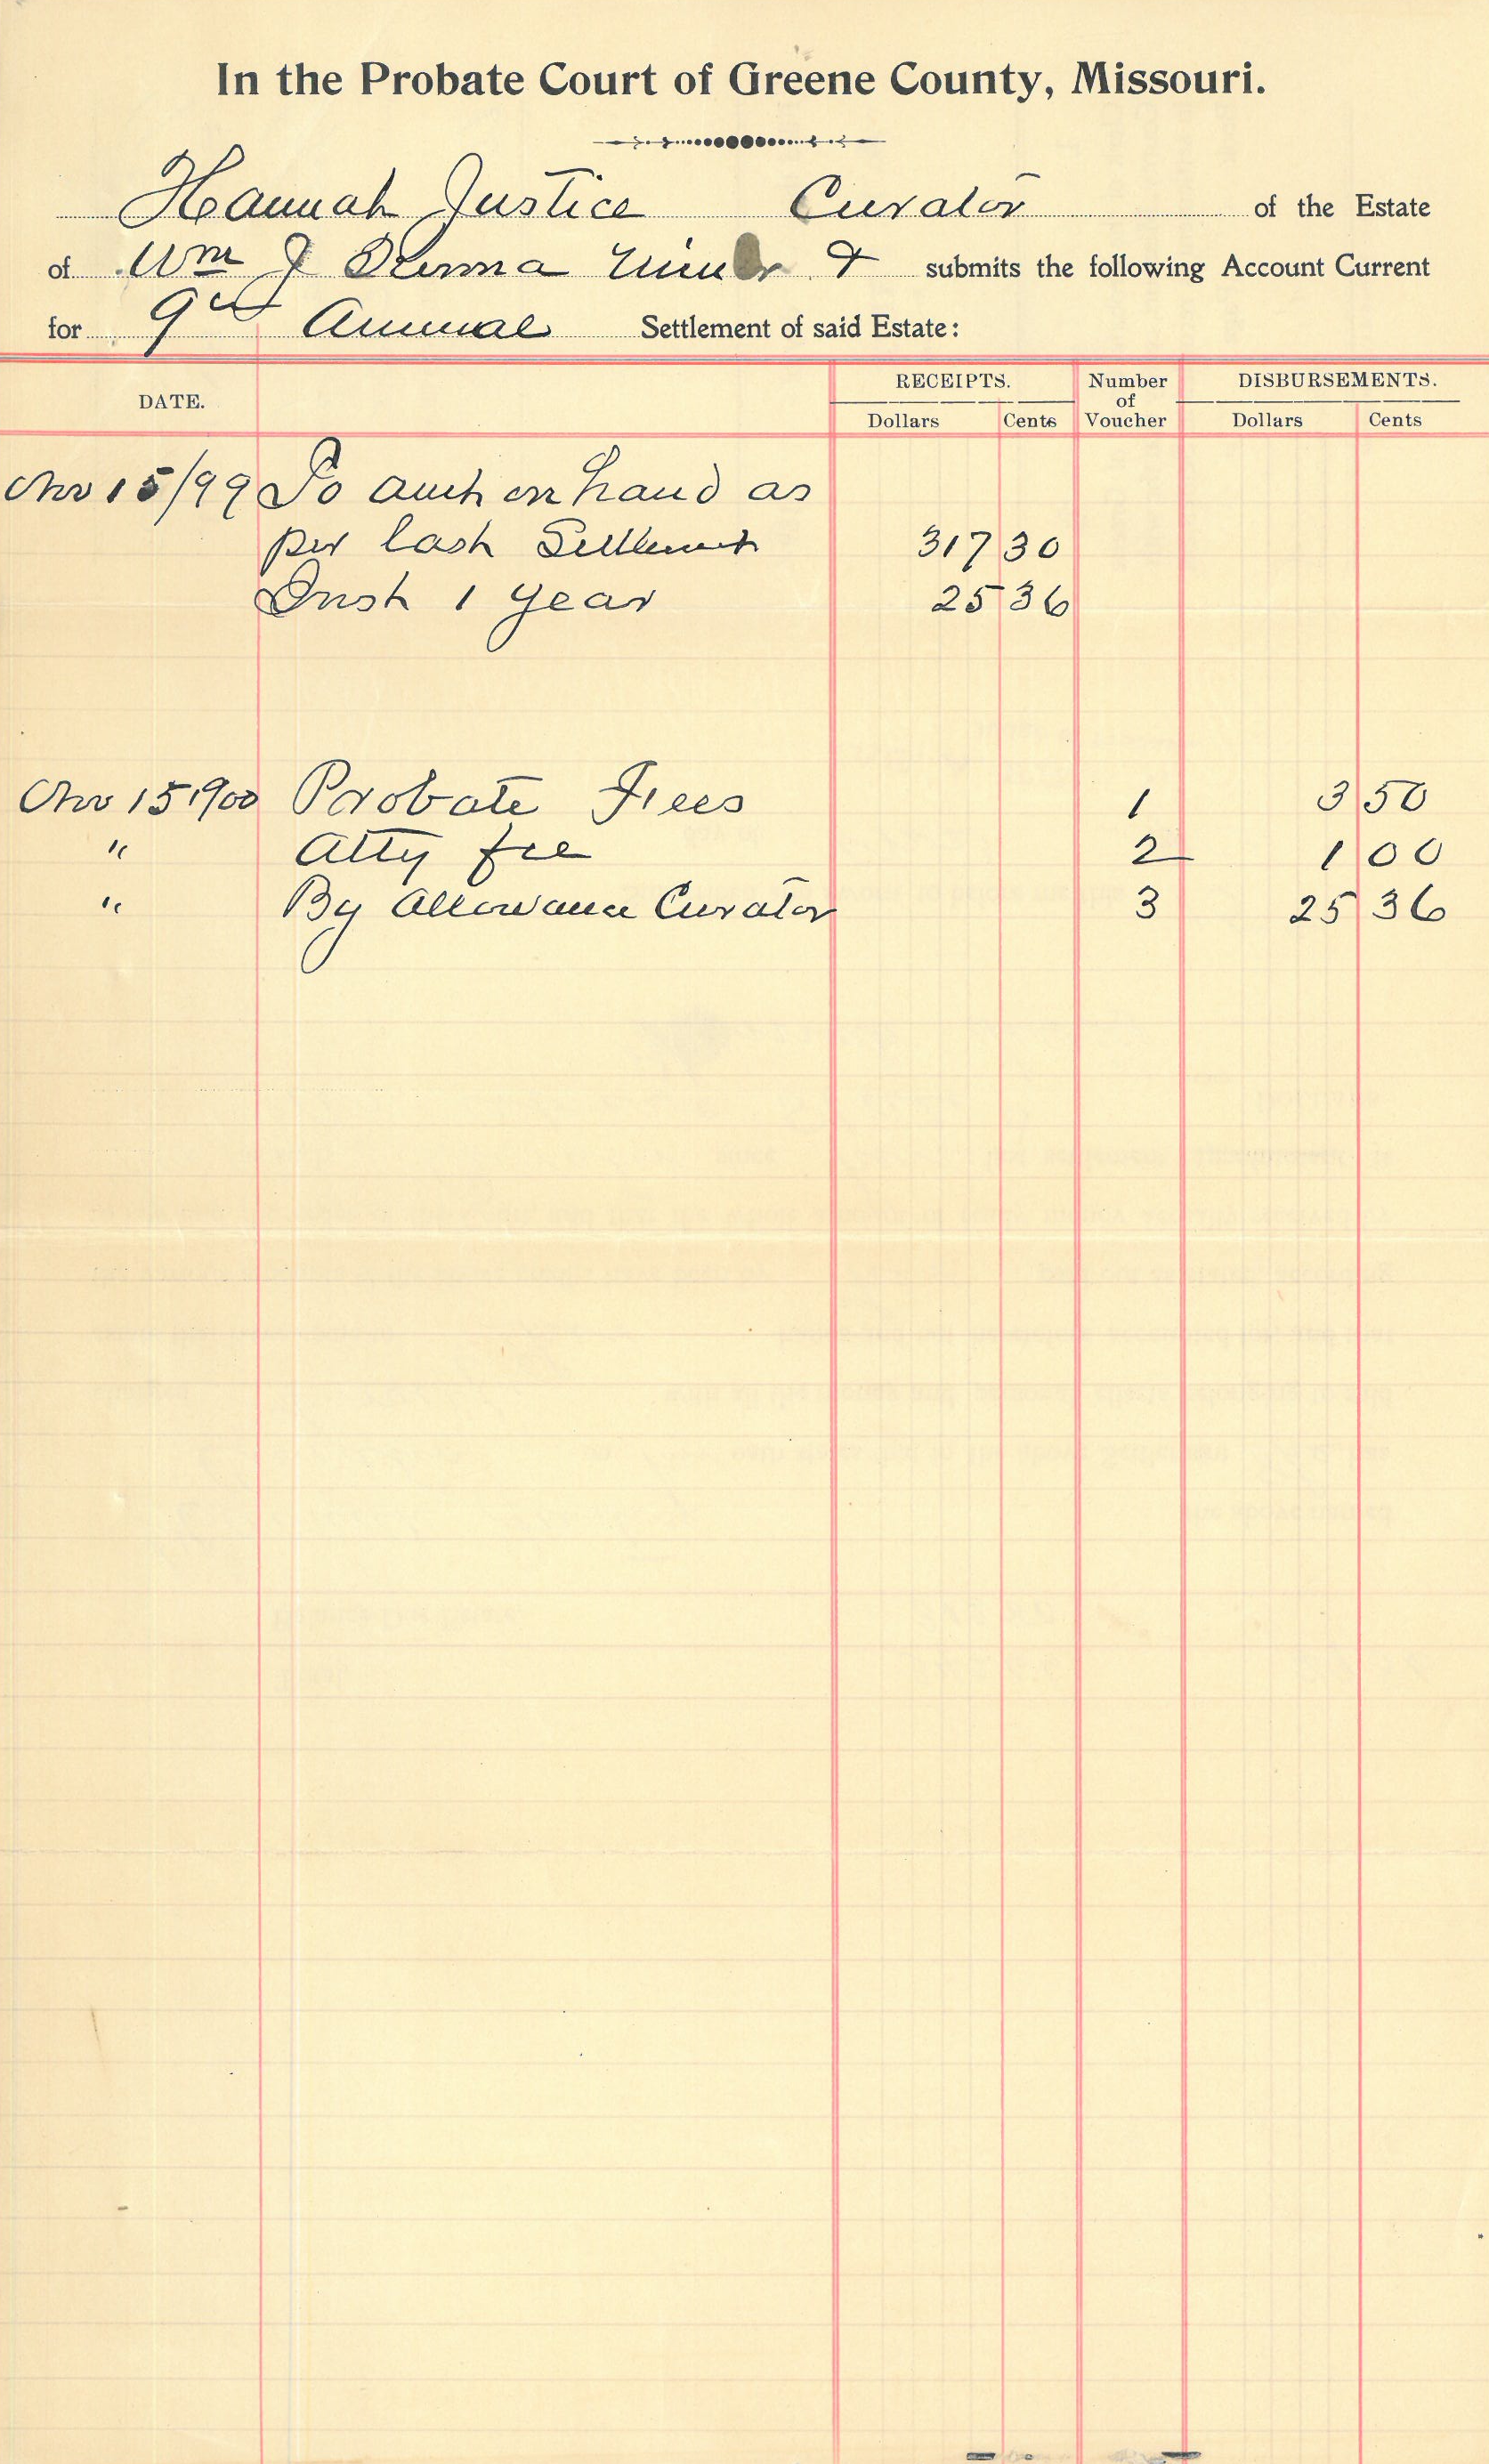 In the Probate Court of Greene County, Missouri.
Hannah Justice Curator of the Estate
of Wm J Minor & submits the following Account Current
for 9th Annual Settlement of said Estate:
DATE. RECEIPTS. Number of Voucher DISBURSEMENTS.
Dollars Cents Dollars Cents
Nov 15/99 To amt on hand as
per last Settlement 317 30
Inst 1 year 25 36
Nov 15 1900 Probate Fees 1 3 50
" Atty fee 2 1 00
" By Allowance Curator 3 25 36